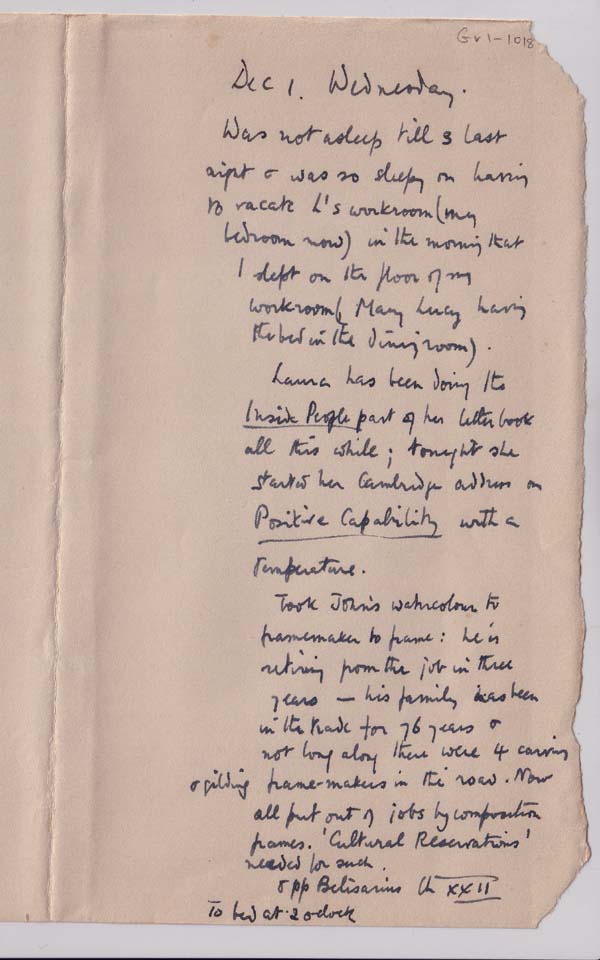 Gv1-1018
Dec 1. Wednesday.
Was not asleep till 3 last
night & was so sleepy on having
to vacate L's workroom (my
bedroom now) in the morning that
I slept on the floor of my
workroom (Mary Lucy having
the bed in the dining room).
Laura has been doing the
Inside People part of her letter book
all this while; tonight she
started her Cambridge address on
Positive Capability with a
temperature.
Took John's watercolour to
framemaker to frame: he is
retiring from the job in three
years — his family has been
in the trade for 76 years &
not long along there were 4 carving
& gilding frame-makers in the road. Now
all put out of jobs by composition
frames. 'Cultural Reservations'
needed for such.
5 pp Belisarius Ch XXII
To bed at 2 oclock